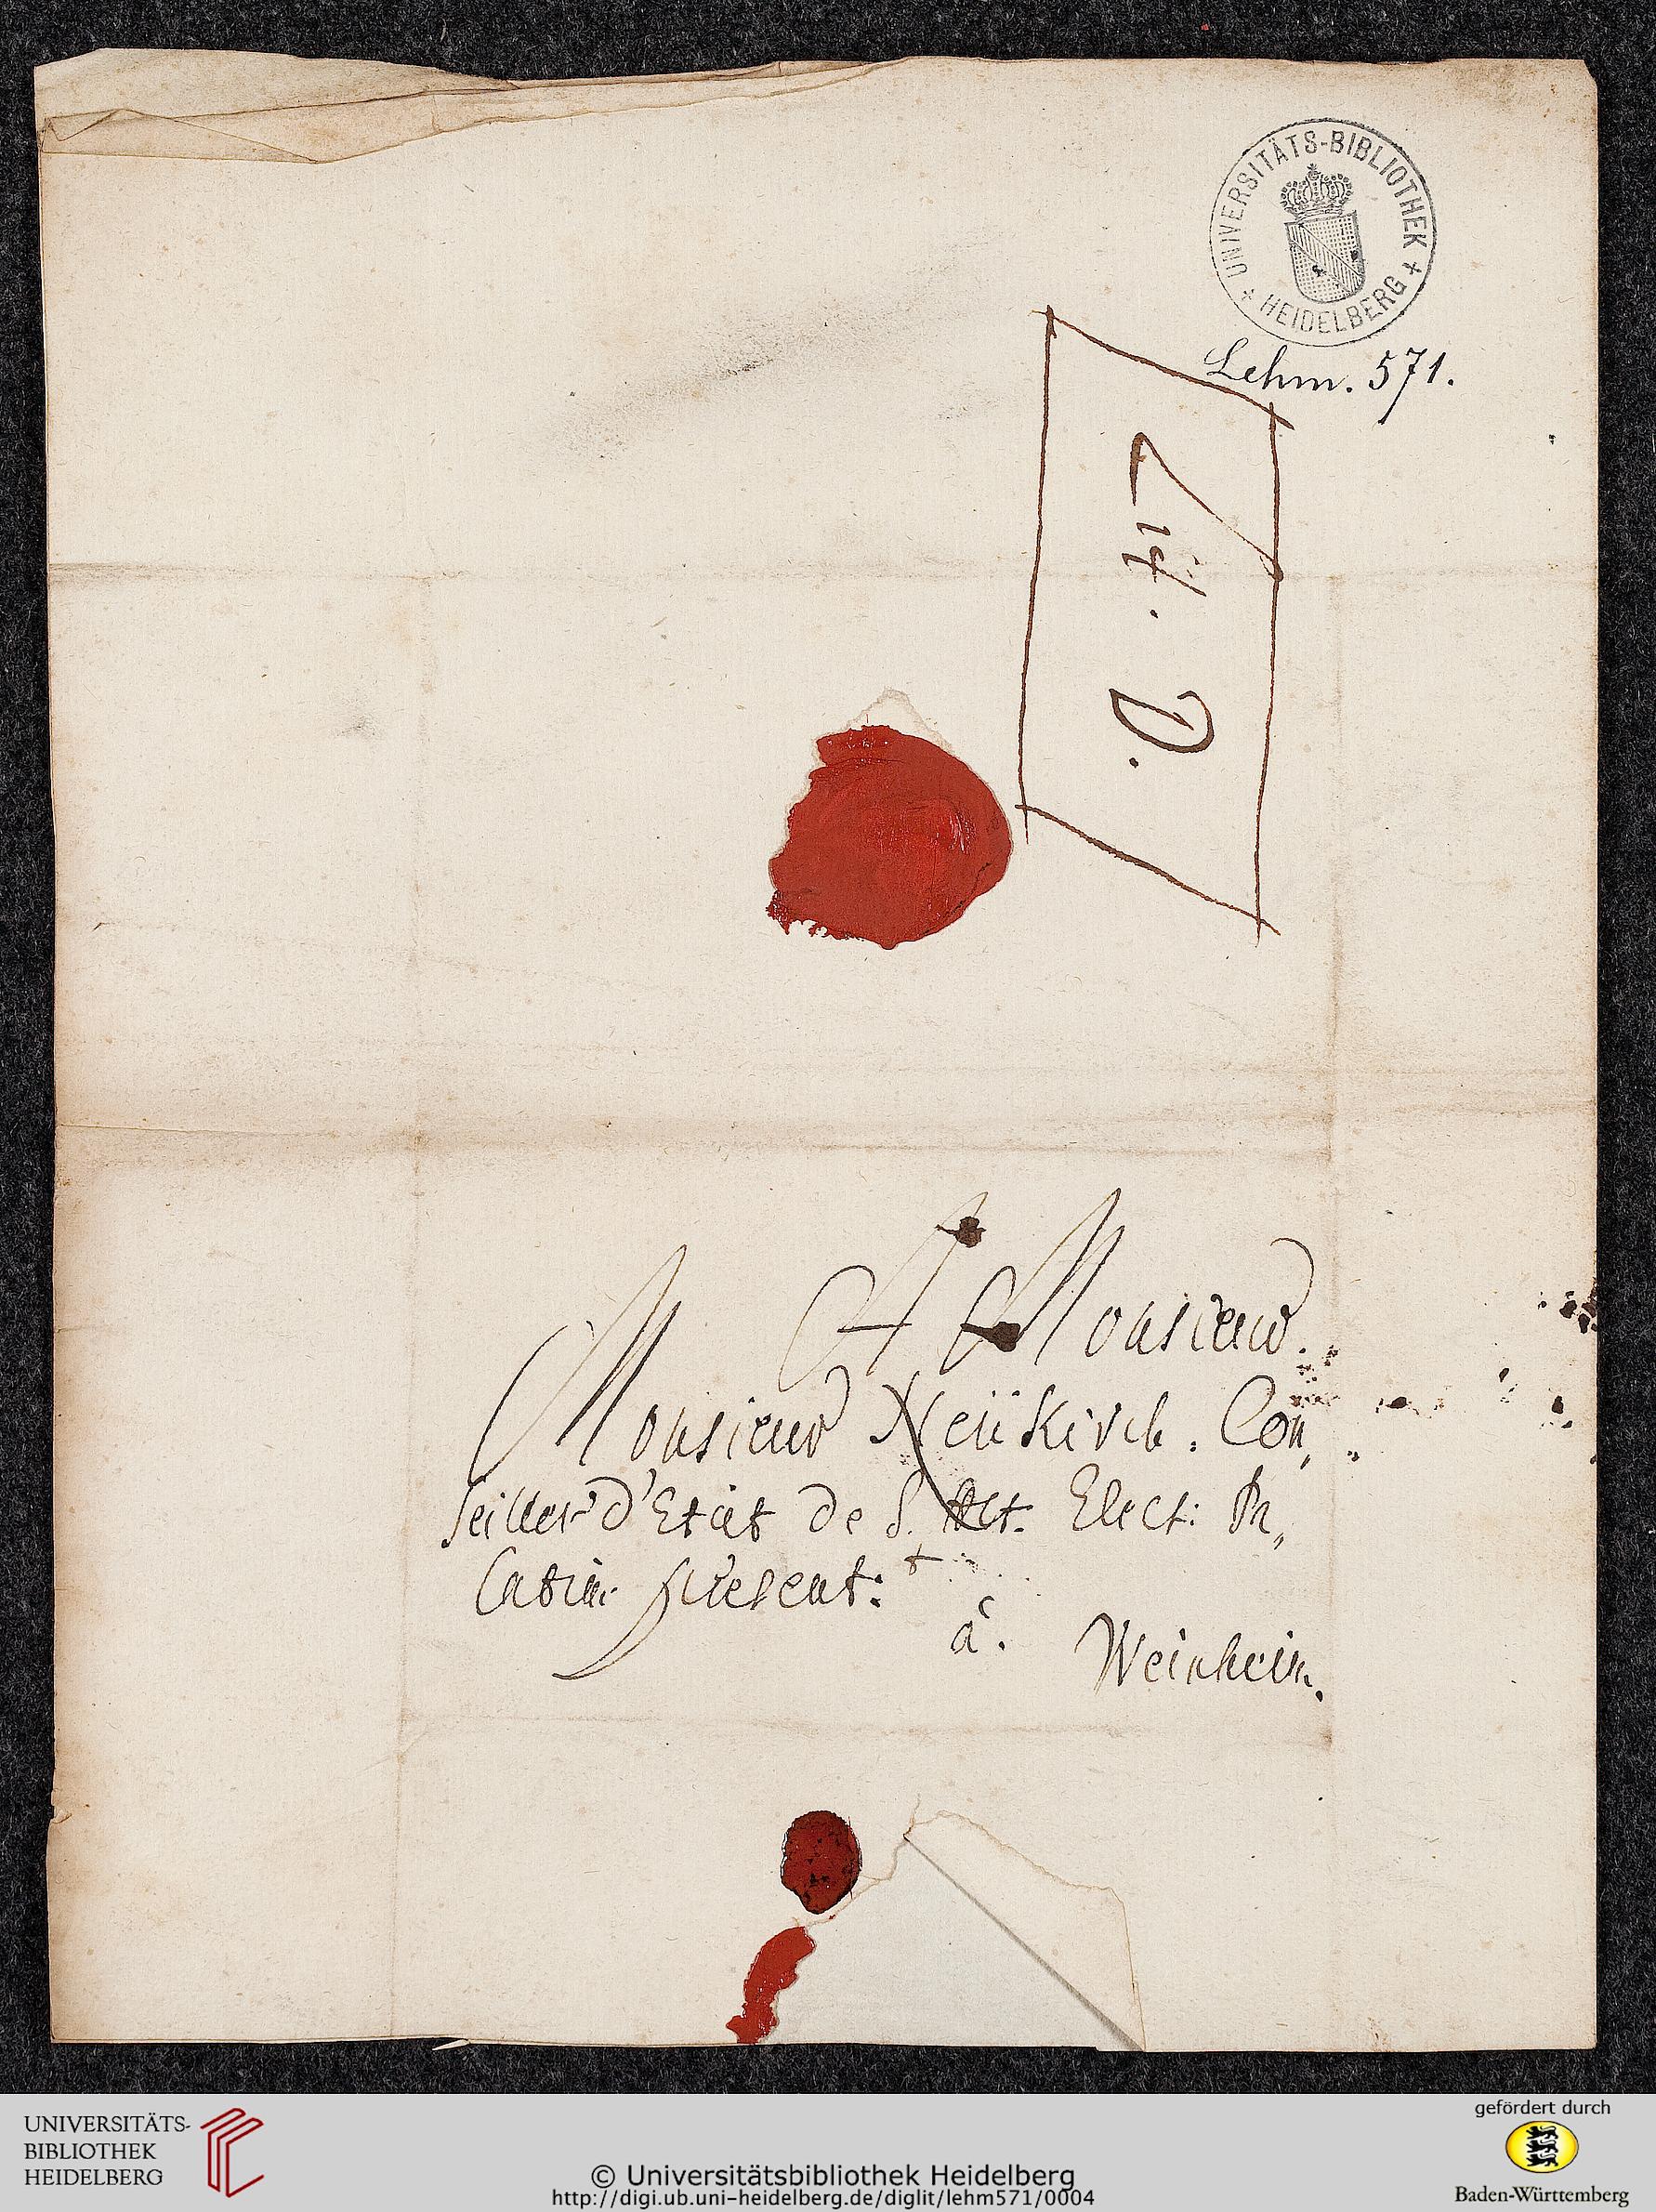 UNIVERSITÄTS-BIBLIOTHEK
+ HEIDELBERG +
Lehm. 571.
Lit. D.
A Monsieur.
Monsieur Neükirch. Con„
seiller d'Etat de S. Alt. Elect: Pa„
latin: present:
à. Weinheim.
UNIVERSITÄTS-
BIBLIOTHEK
HEIDELBERG
© Universitätsbibliothek Heidelberg
http://digi.ub.uni-heidelberg.de/diglit/lehm571/0004
gefördert durch
Baden-Württemberg